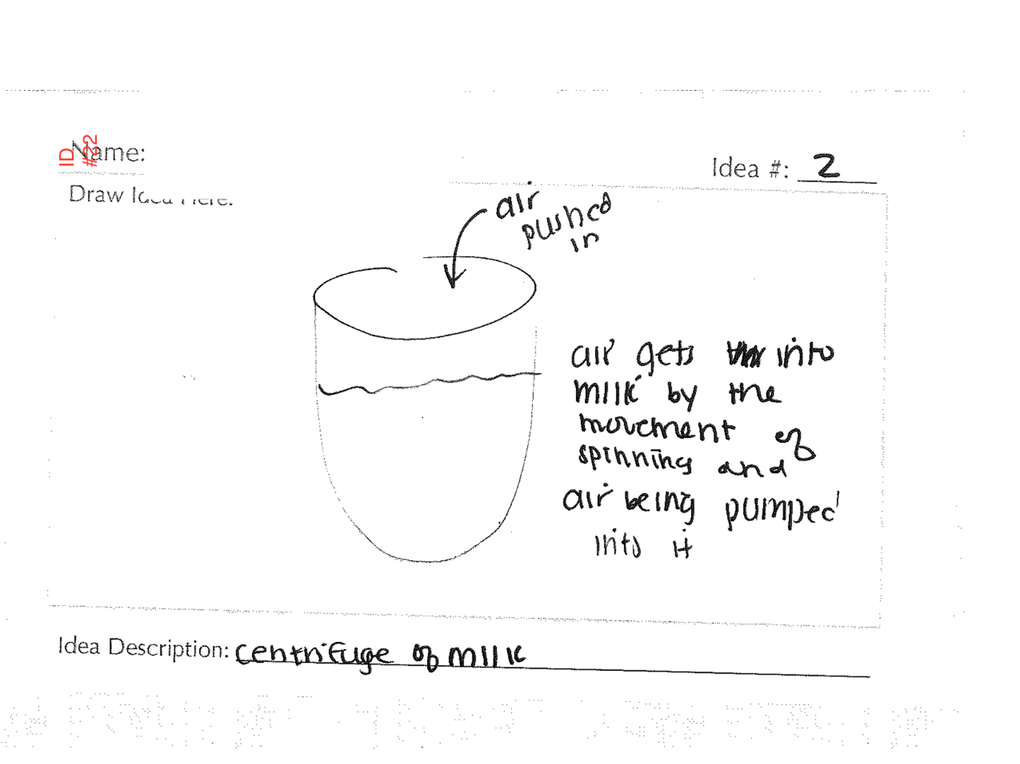 ID
Name:
Idea #: 2
Draw Idea Here:
air
pushed
in
air gets into
milk by the
movement of
spinning and
air being pumped
into it
Idea Description: centrifuge of milk